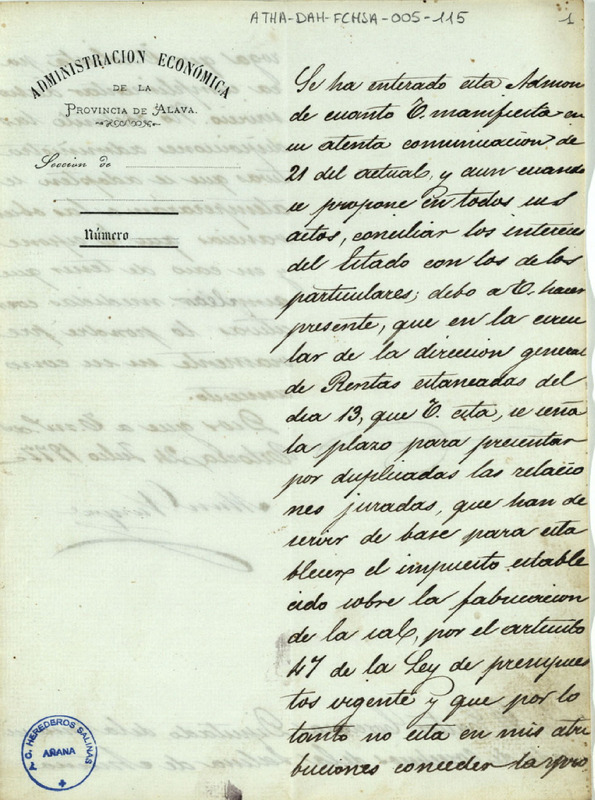 ATHA-DAH-FCHSA-005-115
1
ADMINISTRACION ECONÓMICA
DE LA
PROVINCIA DE ALAVA.
Seccion de
Número
Se ha enterado esta Admon
de cuanto V. manifiesta en
su atenta comunicacion de
21 del actual, y aun cuando
se propone en todos sus
actos, conciliar los intereses
del Estado con los de los
particulares; debo a V. hacer
presente, que en la circu
lar de la direccion general
de Rentas estancadas del
dia 13, que V. cita, se seña
la plazo para presentar
por duplicadas las relacio
nes juradas, que han de
servir de base para esta
blecer el impuesto estable
cido sobre la fabricacion
de la sal, por el articulo
47 de la Ley de presupues
tos vigente y que por lo
tanto no esta en mis atri
buciones conceder la pro
A. C. HEREDEROS SALINAS
AÑANA